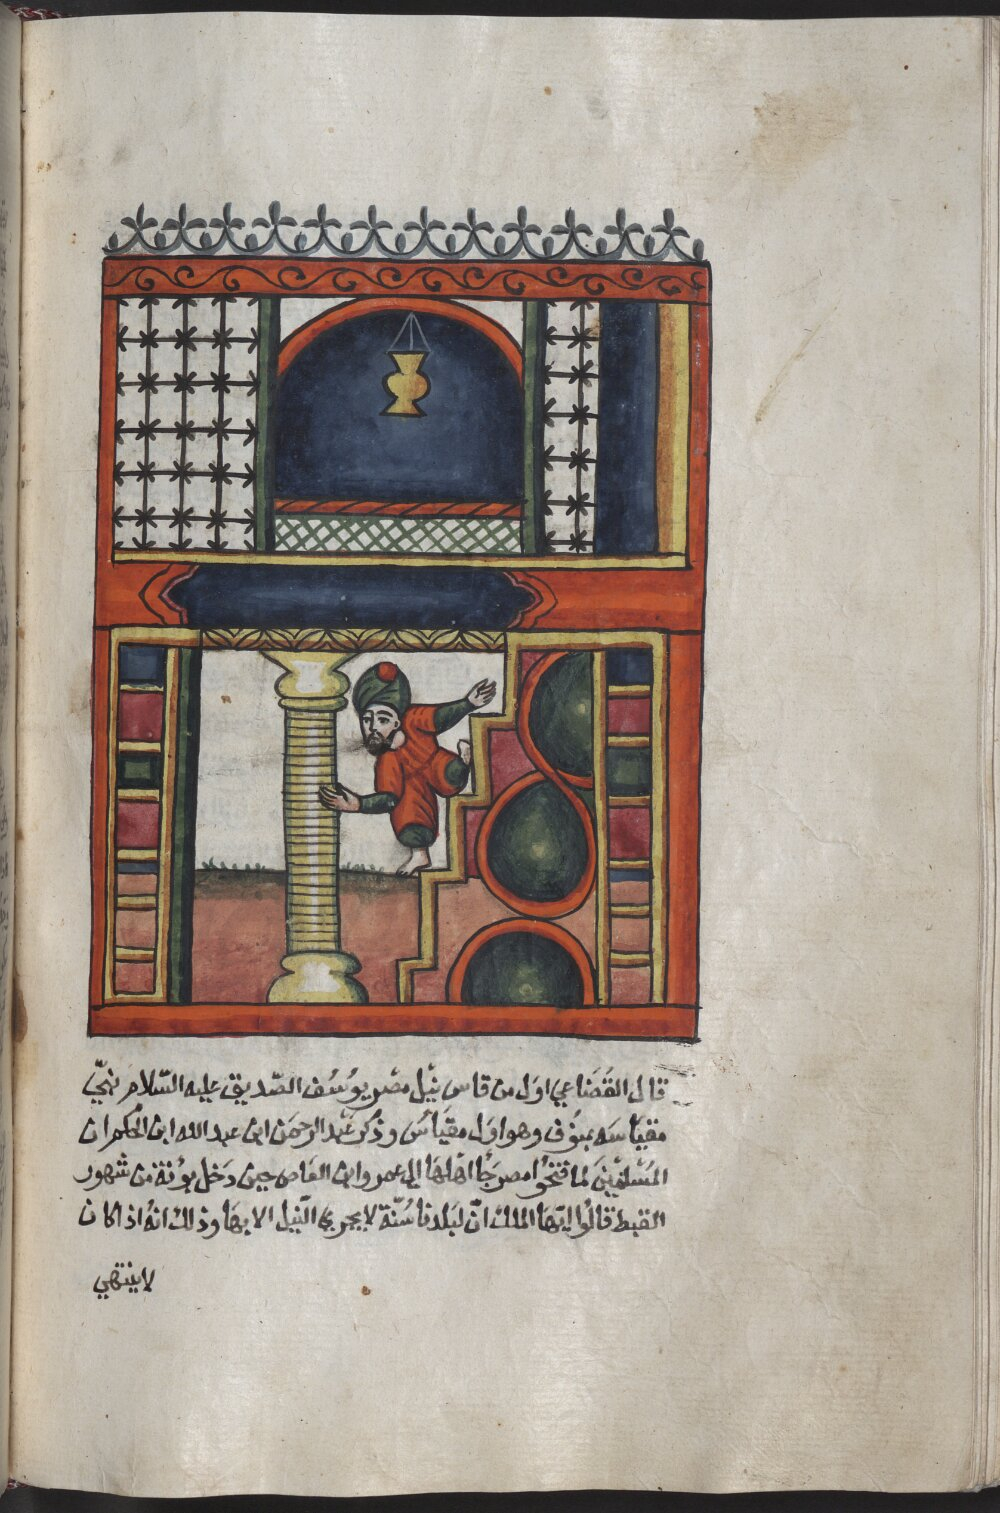 قال القَضَاعي اوَل من قاس نيْل مصْر يوُسُف الصّديق عليه السّلام نهيّ
مقياسَه بمنوُف وهو اوَل مقيَاسْ وذُكَر عَبْد الرحمَن ابن عبد الله ابن الحُكم ان
المُسْلميْنَ لما فتحُوا مصر جَا اهْلهَا الى عمر وابن العَاص حين دَخل بوُنة من شهور
القبط قالُوا ايّها الملك انّ لبَلدنا سُنّة لا يجري النّيل الا بهَا وذلك انهُ اذ اكان
لا ينتهي